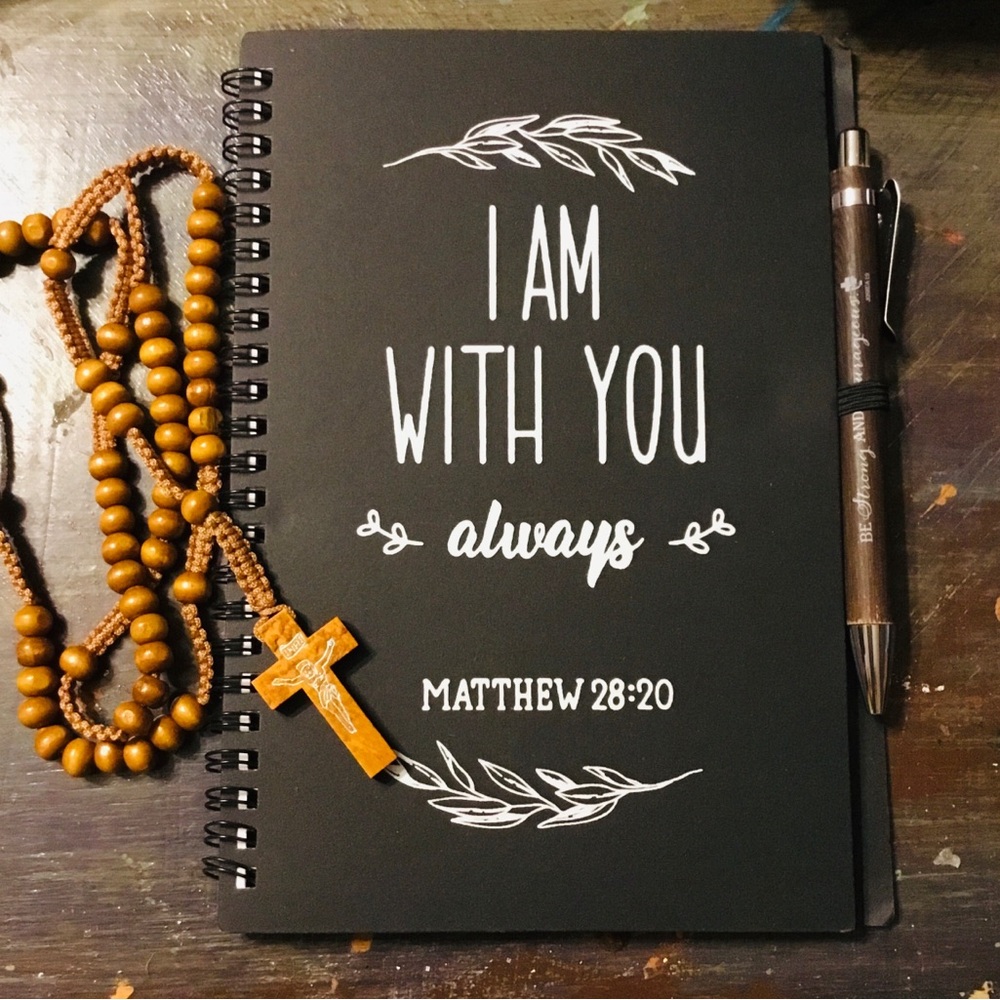 I AM
WITH YOU
always
MATTHEW 28:20
BE Strong AND Courageous
INRI